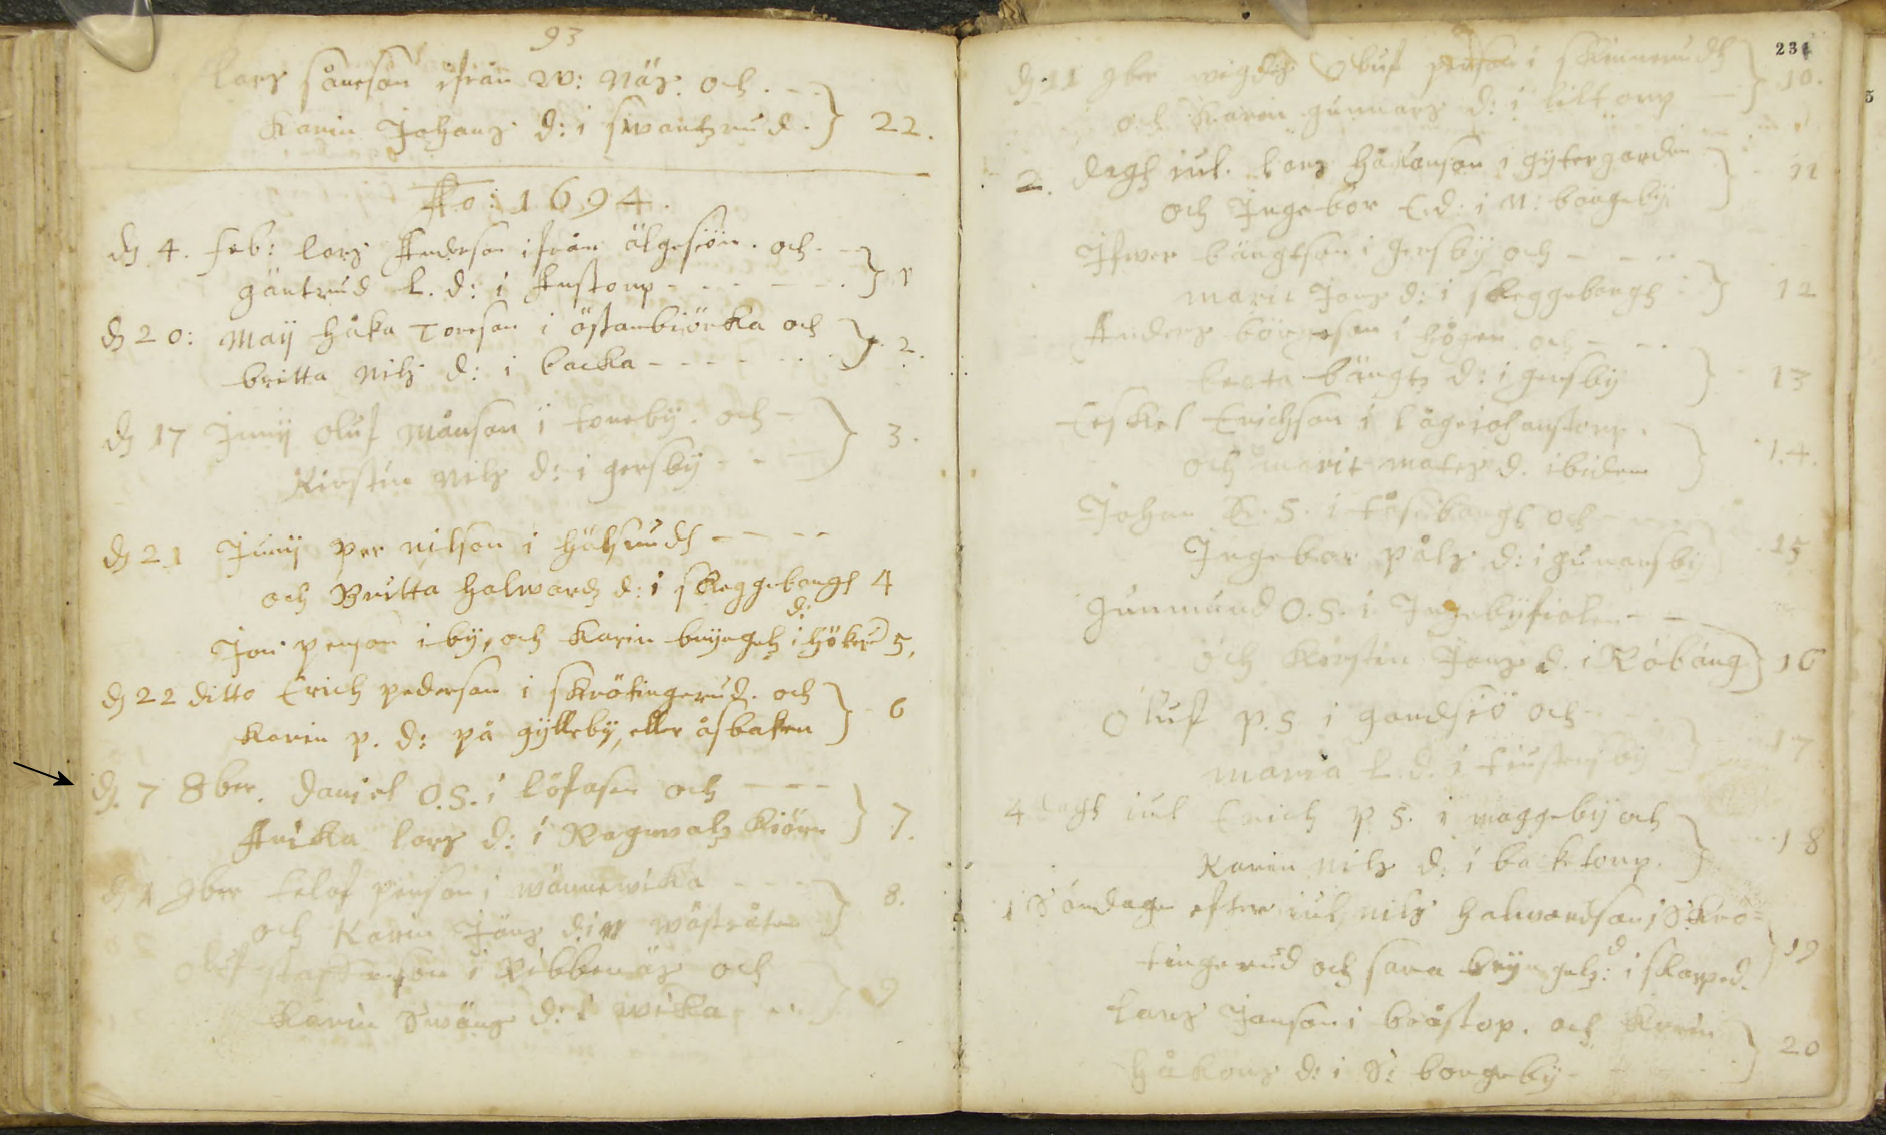 93
lars såneson ifrån W: Näs. och . - -
Karin Johans d: i swartzrud. 22.
Ao: 1694.
d 4. feb: lars Anderson ifrån älgesiön. och -
gäntrud L. d: i Anstorp - - - - - 1
d 20: Maÿ håka Toreson i östanbiörka och
britta nils d: i backa - - - - - 2.
d 17 Junÿ oluf månson i tonebÿ. och -
Kirstin nils d: i gersbÿ - - - 3.
d 21 Junÿ per nilson i hälserudh - - - -
och Britta halwards d: i skeggebergh 4
d:
Jon person i bÿ, och Karin brÿngels i höker 5,
d 22 ditto Erich pederson i skrötingerud. och
Karin p. d: på gÿlleby, eller åsbaken 6
d. 7 8ber. daniel O.S. i löfåsen och - - -
Anika lars d: i Ragwalskiörn 7.
d 1 9ber Elof person i wännewika - - -
och Karin Jöns d: i wästråtne 8.
oluf staffenson i Ribbenäs och
Karin Swäns d: i wika - .. 9
231
d 11 9ber wigdes Oluf person i skinnerudh 10.
och Karin gunnars d: i liltorp
2. dagh iul. lars håkonson i gÿtergarden 11
och Ingebor E.d. i N: borgebÿ
Ifwer bängtson i gersbÿ och - - - ..
marit Jons d: i skeggebergh : 12
Anders börgeson i högen och - - .
berta bängts d: i gersbÿ 13
Eskel Erichson i lågeiohanstorp.
och marit mates d. ibidem 14.
Johan E. S. i tåsebergh och
Ingebor påls d: i gunarsbÿ 15
gunmund O.S. i Ingebÿfiolen - -
och Kirstin Jons d. i Röbäng 16
Oluf p.S i gardsiö och
maria L. d. i tiustersbÿ 17
4 dagh iul Erich p S. i maggebÿ och
Karin nils d: i baktorp. 18
1 Söndagen efter iul, nils halwardson i Skrö=
tingerud och sara brÿngels: d i skarped. 19
lars Jonson i bråstop. och Karin
håkons d: i S: borgebÿ 20